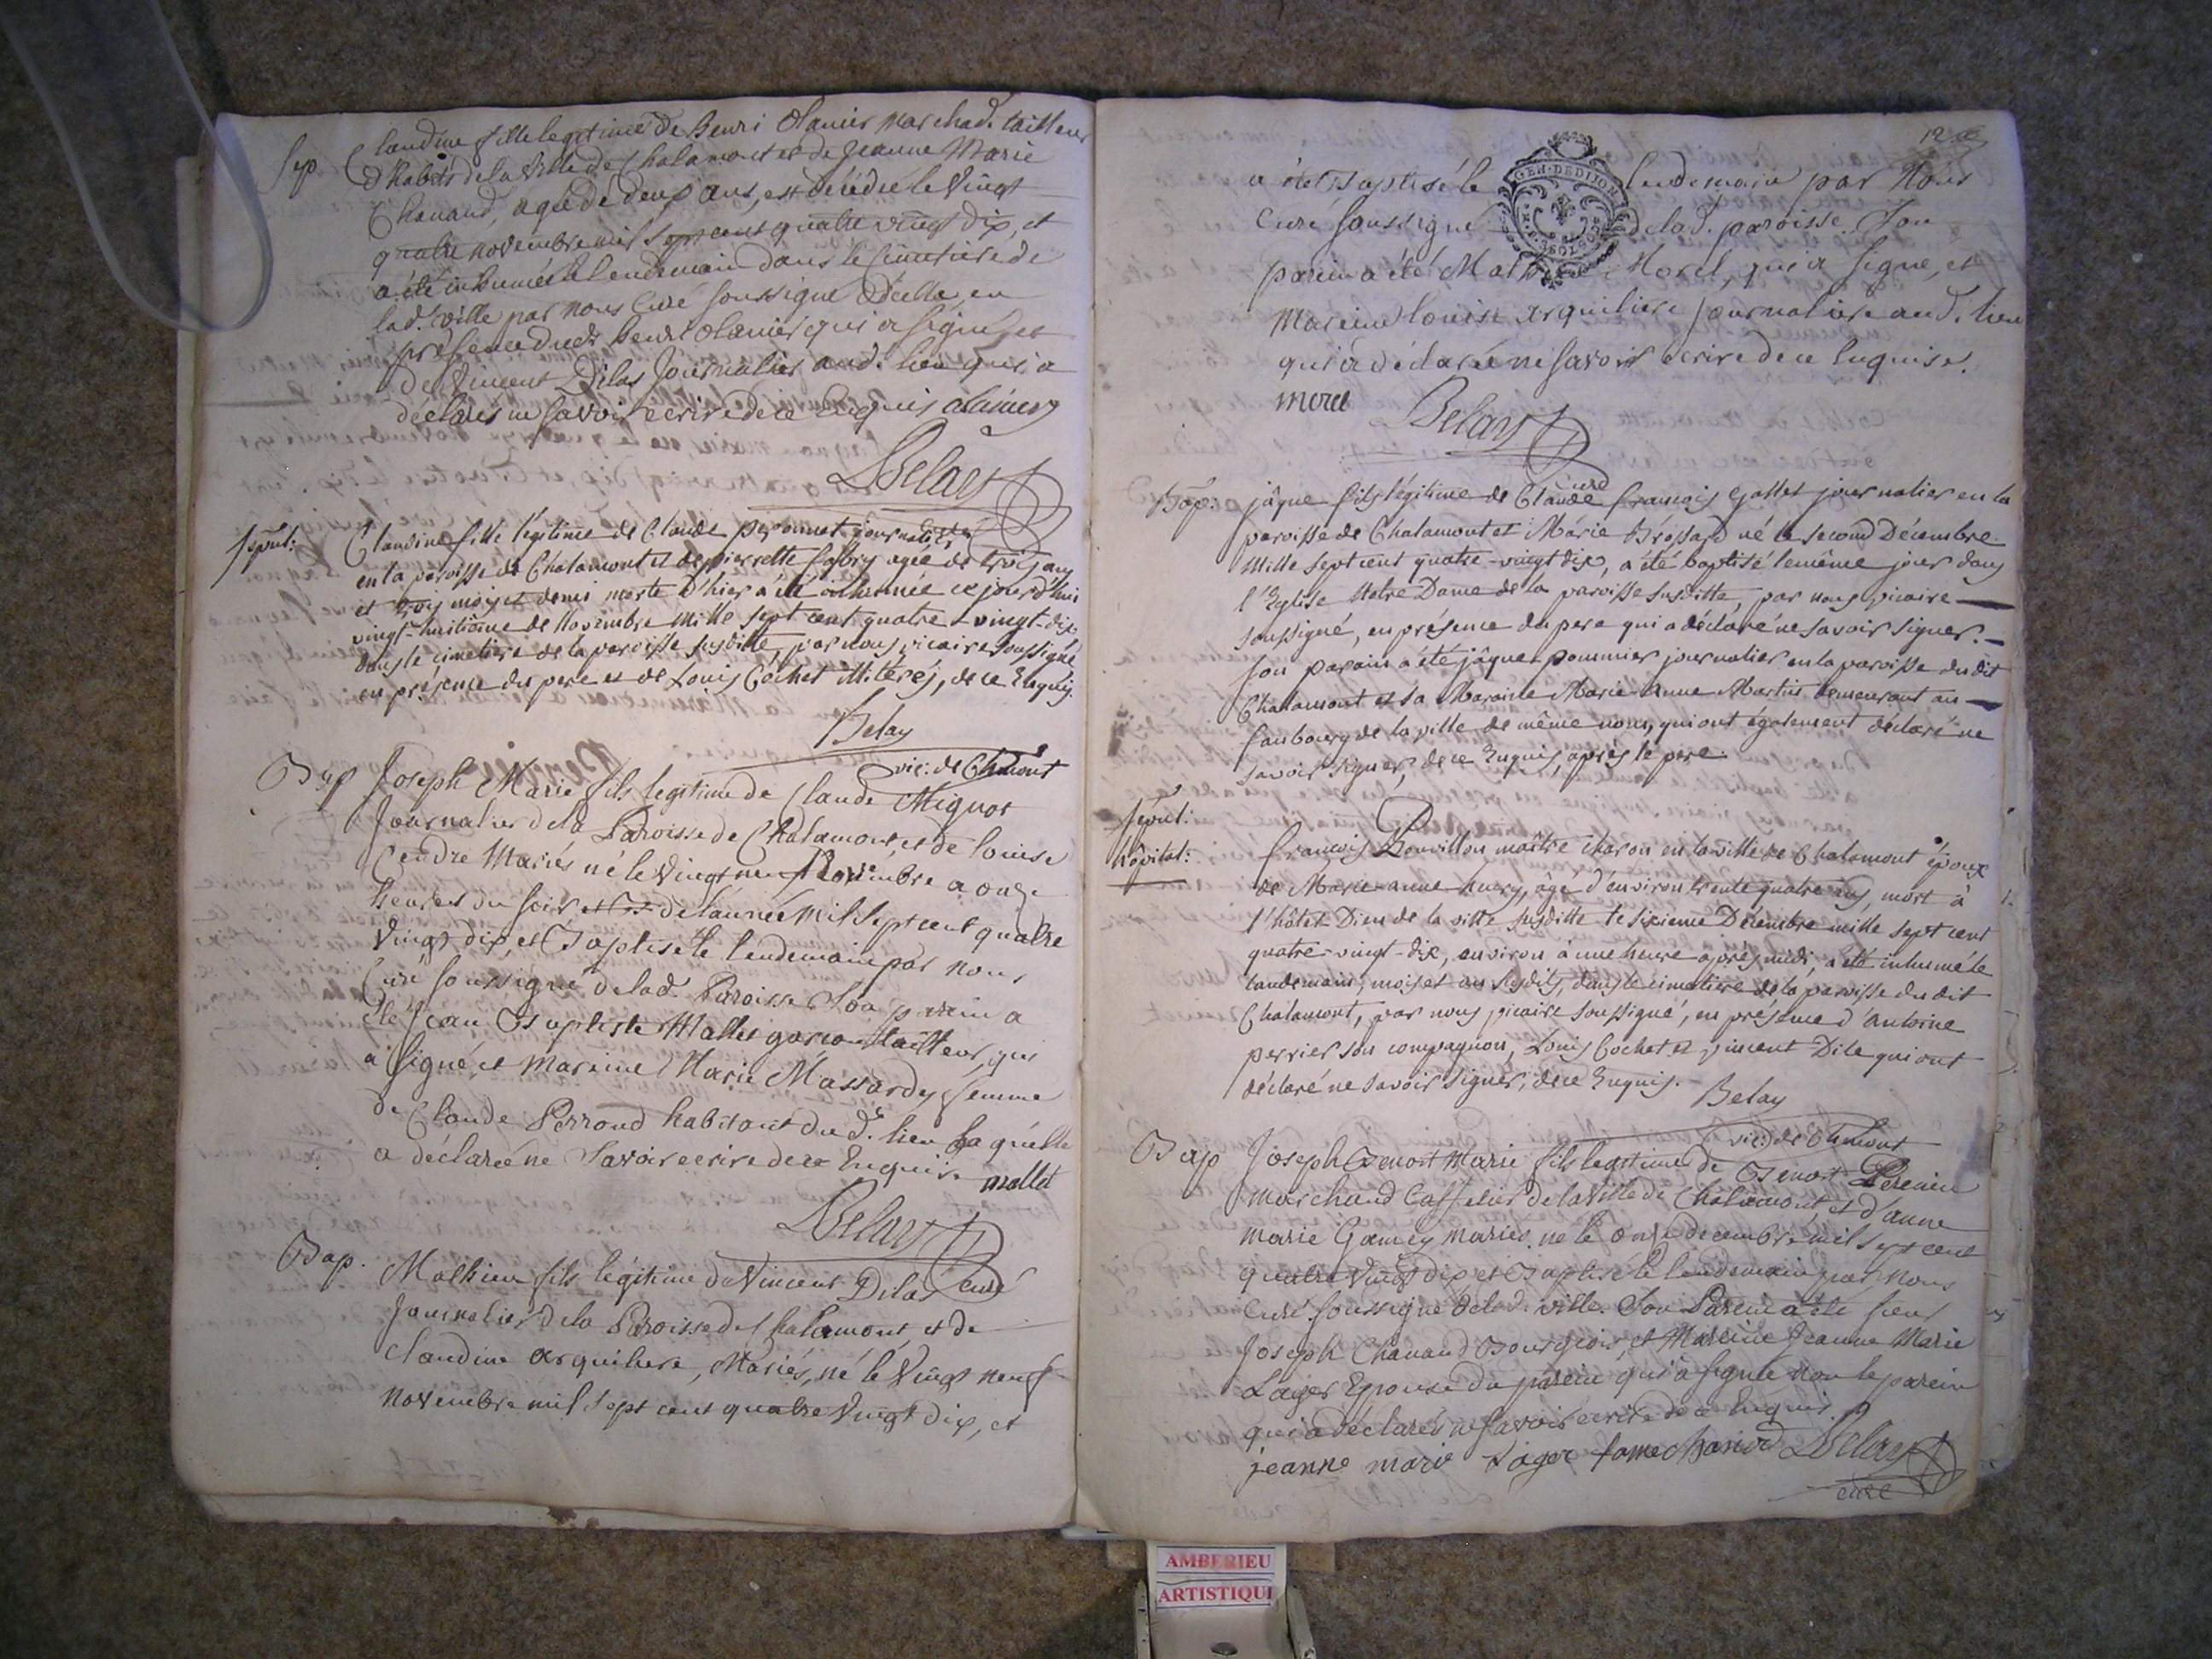 Sep. Claudine fille legitime de Henri Olanier marchad. tailleur
d'habits de la Ville de Chalamont et de Jeanne Marie
Chanaud, agée de deux ans, est décédée le Vingt
quatre novembre mil sept cent quatre vingt dix, et
a été inhumée le lendemain dans le Cimetiere de
lad. Ville par nous Curé soussigné d'icelle, en
presence dudt Henri Olanier qui a signé, et
de Vincent Dilas Journalier aud. lieu qui a
déclaré ne savoir ecrire de ce Enquis olanier
Belay
Sepul: Claudine fille légitime de Claude peronnet journalier
en la paroisse de Chalamont et de pierrette fabry agée de trois ans
et trois mois et demi morte d'hier a été inhumée ce jourd'hui
vingt-huitieme de Novembre Mille sept cent quatre-vingt-dix
dans le cimetiere de la paroisse susditte, par nous vicaire soussigné
en présence du pere et de Louis Cochet illiterés, de ce Enquis.
Belay
vic: de Chmont
Bap Joseph Marie fils legitime de Claude Mignot
Journalier de la Paroisse de Chalamont et de louise
Cendre Mariés né le Vingt neuf Novembre a onze
heures du soir de l'année Mil Sept cent quatre
Vingt dix, et Baptisé le lendemain par nous
Curé soussigné de lad. Paroisse Son parein a
été Jean Baptiste Mallet garcon tailleur, qui
a signé, et Mareine Marie Massardy femme
de Claude Perroud habitant dud. lieu laquelle
a déclarée ne Savoir ecrire de ce Enquise mallet
Belay
curé
Bap. Mathieu fils légitime de Vincent Dilas
Journalier de la Paroisse de Chalamont, et de
Claudine arquiliere, Mariés, né le Vingt neuf
novembre mil sept cent quatre Vingt dix, et
12
GEN. DE DIJON
a été Baptisé le lendemain par Nous
Curé soussigné de lad. paroisse. Son
parein a été Math Morel, qui a signé, et
Mareine louise arquiliere journaliere aud. lieu
qui a déclarée ne savoir ecrire de ce Enquise.
morel Belay
curé
Bap: jâque fils légitime de Claude francois Gallet journalier en la
paroisse de Chalamont et Marie Brossard né le second Décembre
Mille sept cent quatre-vingt dix, a été baptisé le même jour dans
l'Eglise Notre Dame de la paroisse susditte, par nous vicaire
soussigné, en présence du pere qui a déclaré ne savoir signer.
son parain a été jâque pommier journalier en la paroisse du dit
Chalamont et sa Maraine Marie-anne Martin demeurant au
fauxbourg de la ville de même nom, qui ont également déclaré ne
savoir signer, de ce Enquis, après le pere.
Sépul:
hôpital: francois Bouvillon maître charon en la ville de Chalamont époux
de Marie-anne henry, âgé d'environ trente quatre ans, mort à
l'hôtel Dieu de la ville susditte le sixieme Décembre mille sept cent
quatre-vingt-dix, environ à une heure après midi, a été inhumé le
landemain, mois et an susdits, dans le cimetiere de la paroisse du dit
Chalamont, par nous vicaire soussigné, en présence d'antoine
perrier son compagnon, Louis Cochet et vincent Dile qui ont
déclaré ne savoir signer, de ce Enquis.
Belay
vic: de Chmont
Bap Joseph Benoit Marie fils legitime de Benoit
marchand Caffetier de la Ville de Chalamont et d'anne
marie Gamey mariés né le onze decembre mil sept cent
quatre Vingt dix et Baptisé le lendemain par nous
Curé soussigné de lad. ville. Son Parein a été sieur
Joseph Chanaud Bourgeois, et Mareine Jeanne Marie
Lager Epouse du parein qui a signée non le parein
qui a déclaré ne savoir ecrire de ce Enquis.
jeanne marie Lager fame chanod Belay
curé
AMBERIEU
ARTISTIQUE